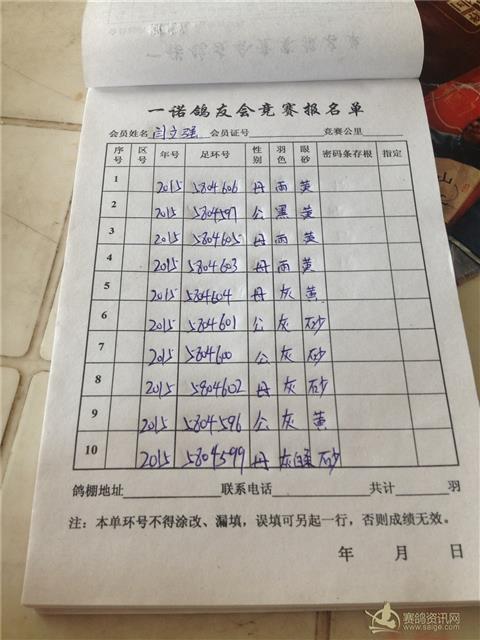 一诺鸽友会竞赛报名单
会员姓名 闫文强 会员证号 竞赛公里
序号 区号 年号 足环号 性别 羽色 眼砂 密码条存根 指定
1 2015 5804606 母 雨 黄
2 2015 5804597 公 黑 黄
3 2015 5804605 母 雨 黄
4 2015 5804603 母 雨 黄
5 2015 5804604 母 灰 黄
6 2015 5804601 公 灰 砂
7 2015 5804600 公 灰 砂
8 2015 5804602 母 灰 砂
9 2015 5804596 公 灰 黄
10 2015 5804599 母 灰 砂
鸽棚地址 联系电话 共计 羽
注：本单环号不得涂改、漏填，误填可另起一行，否则成绩无效。
年 月 日
赛鸽资讯网
www.saige.com